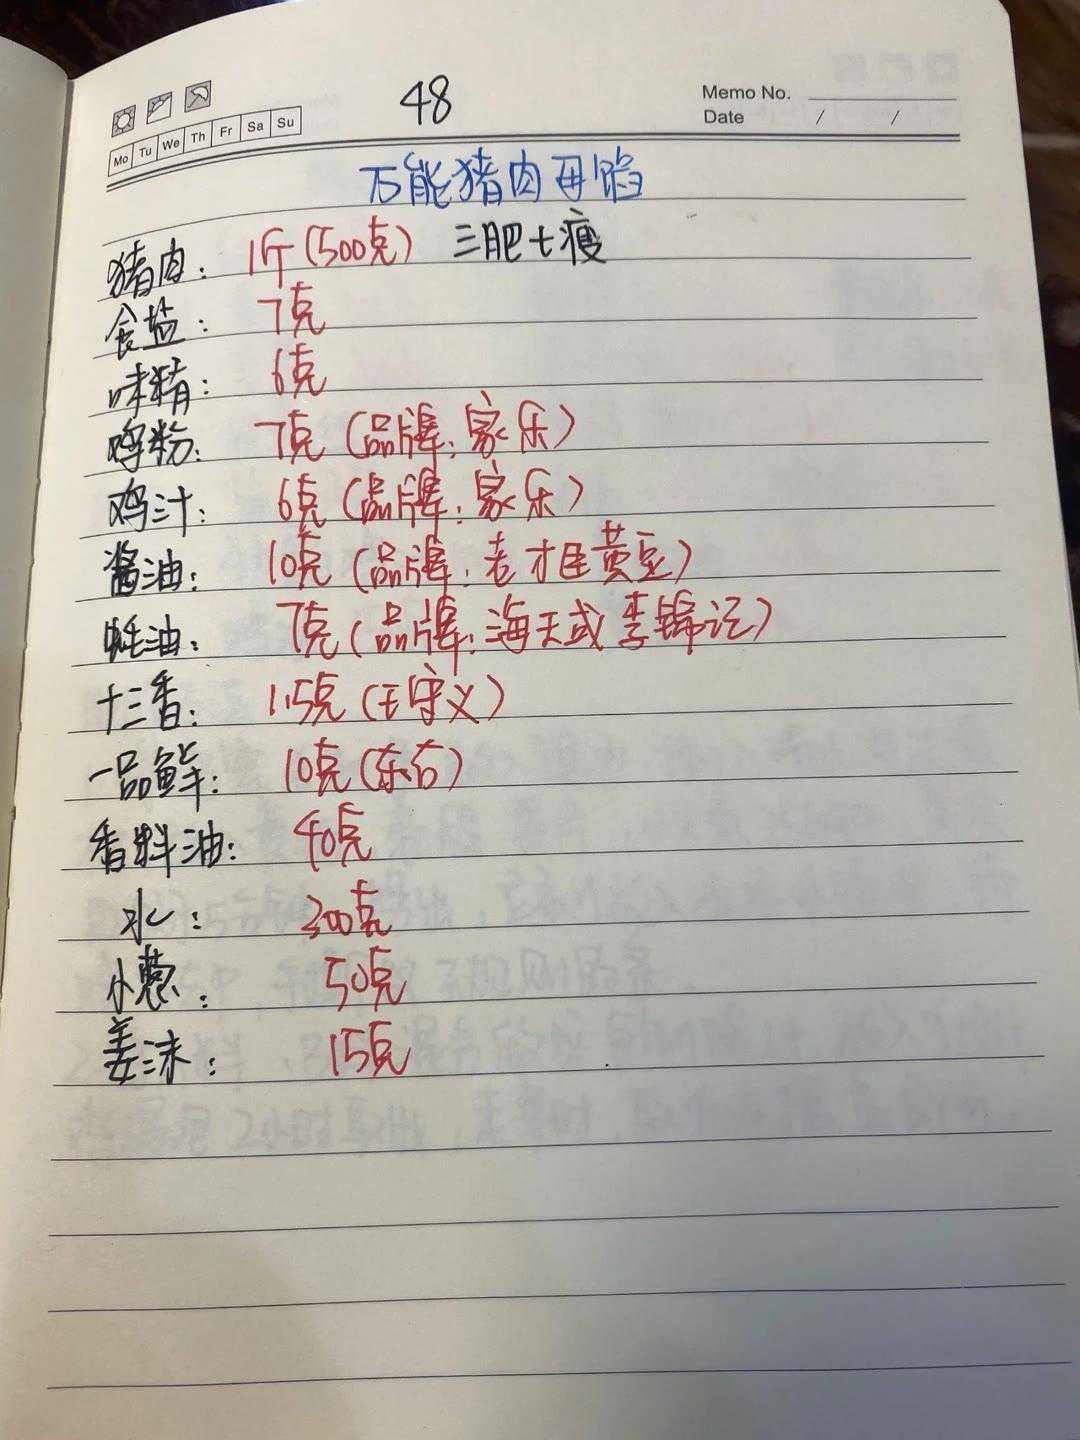 48
Memo No.
Date / /
Mo Tu We Th Fr Sa Su
万能猪肉母馅
猪肉: 1斤(500克) 三肥七瘦
食盐: 7克
味精: 6克
鸡粉: 7克(品牌:家乐)
鸡汁: 6克(品牌:家乐)
酱油: 10克(品牌:老才臣黄豆)
蚝油: 7克(品牌:海天或李锦记)
十三香: 1.5克(王守义)
一品鲜: 10克(东古)
香料油: 40克
水: 300克
小葱: 50克
姜沫: 15克